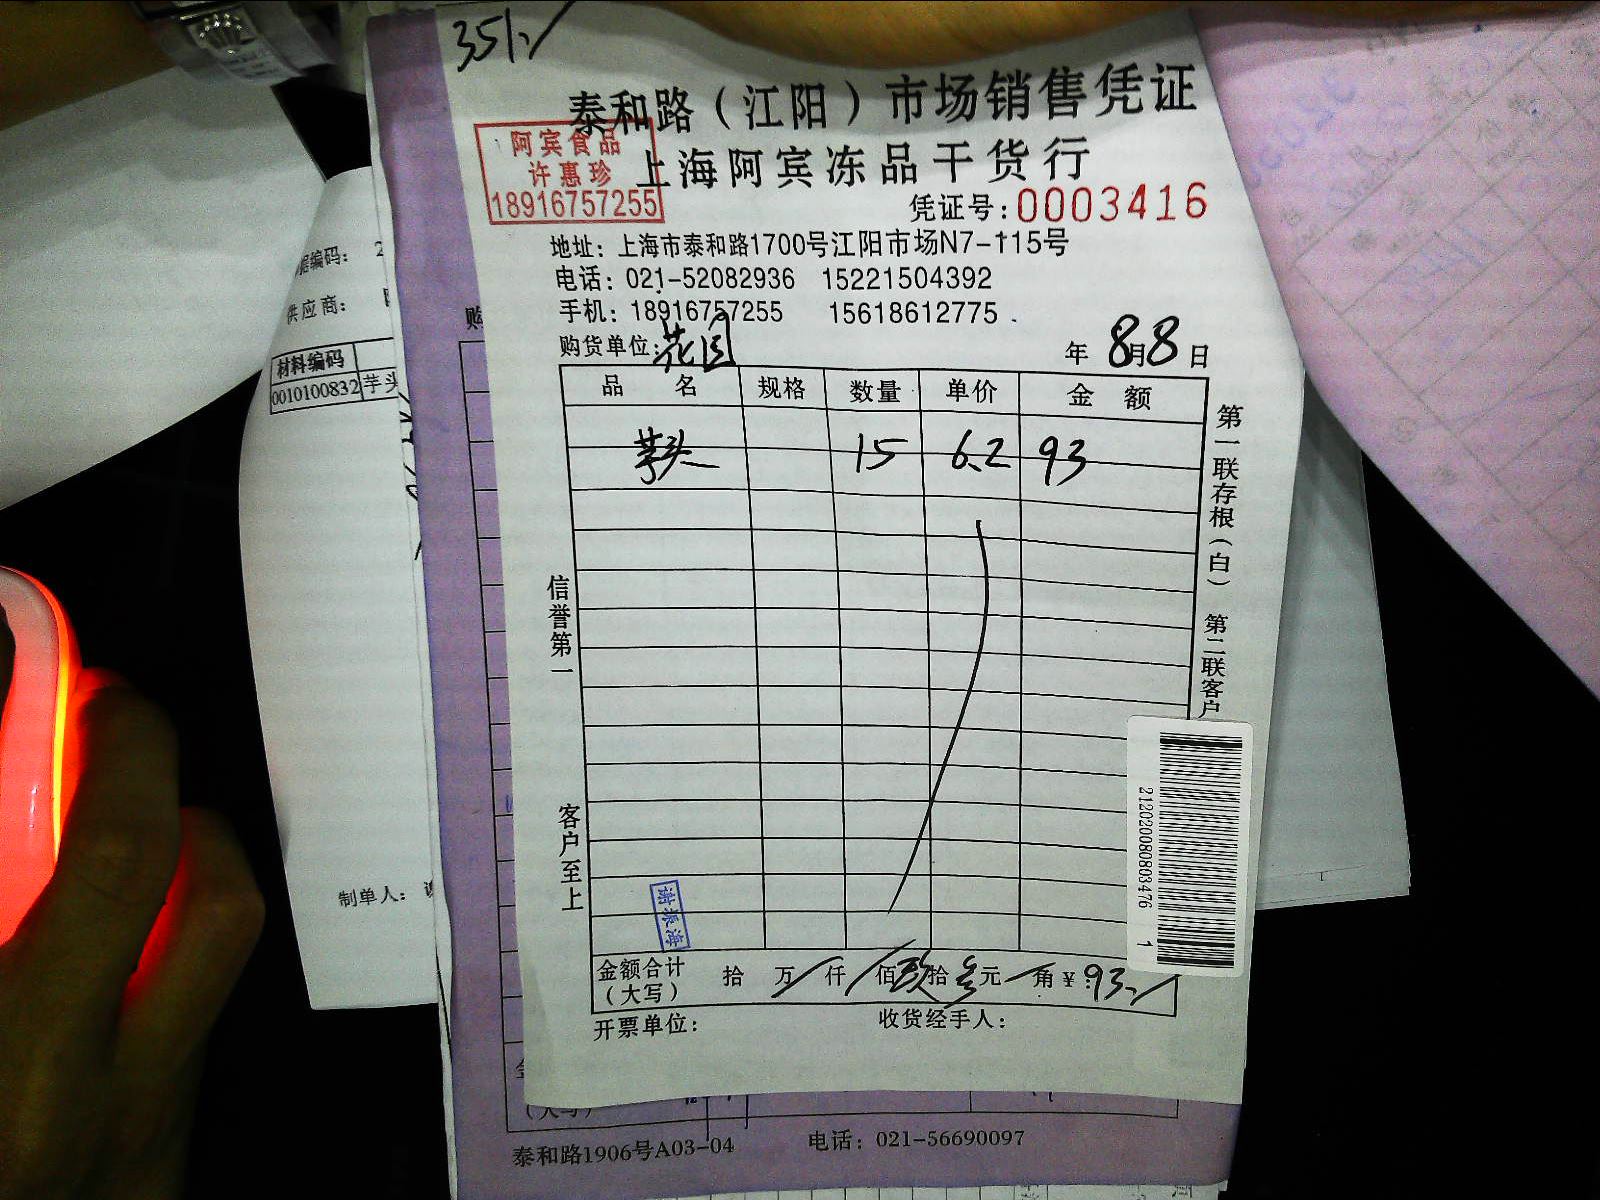 351.
泰和路（江阳）市场销售凭证
阿宾食品
许惠珍
18916757255
上海阿宾冻品干货行
凭证号：0003416
地址：上海市泰和路1700号江阳市场N7-115号
电话：021-52082936 15221504392
手机：18916757255 15618612775
购货单位：花园 年 8月8日
品名 规格 数量 单价 金额
芋头 15 6.2 93
第一联存根（白） 第二联客户
信誉第一
客户至上
212020080803476 1
金额合计（大写） 拾 万 仟 佰 玖拾叁元 角 ¥：93.
开票单位： 收货经手人：
据编码： 2
供应商：
材料编码
0010100832 芋头
制单人：
购
（大写）
泰和路1906号A03-04 电话：021-56690097